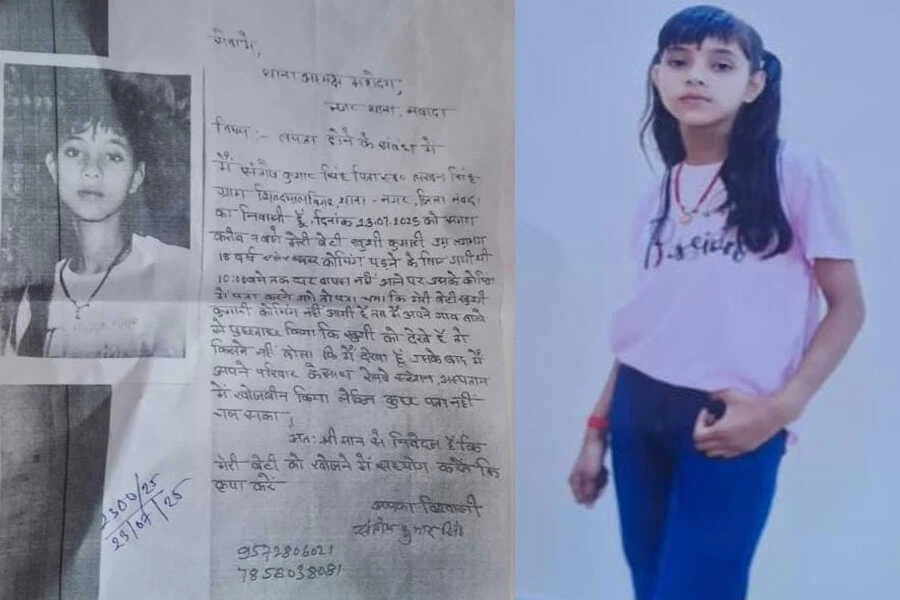 सेवा में,
थाना अध्यक्ष महोदय,
नगर थाना, नवादा
विषय :- लापता होने के संबंध में
मैं संजीव कुमार सिंह पिता स्व० सिंह
ग्राम थाना - नगर, जिला नवादा
का निवासी हूँ, दिनांक 23.07.2025 को
करीब बजे मेरी बेटी खुशी कुमारी उम्र लगभग
वर्ष कोचिंग पढ़ने के लिए गयी थी
10:00 बजे तक घर वापस नहीं आने पर उसके कोचिंग
में पता करने गये तो पता चला कि मेरी बेटी खुशी
कुमारी कोचिंग नहीं आयी है तब मैं अपने गाव वाले
से पुछताछ किया कि खुशी को देखे हैं तो
किसी ने नहीं बोला कि मैं देखा हूं उसके बाद मैं
अपने परिवार के साथ रेलवे स्टेशन, अस्पताल
में खोजबीन किया लेकिन कुछ पता नहीं
चल सका।
अतः श्रीमान से निवेदन है कि
मेरी बेटी को खोजने में सहयोग करने कि
कृपा करें
आपका विश्वासी
संजीव कुमार सिंह
9572806021
7858038081
2300/25
23/07/25
Besides